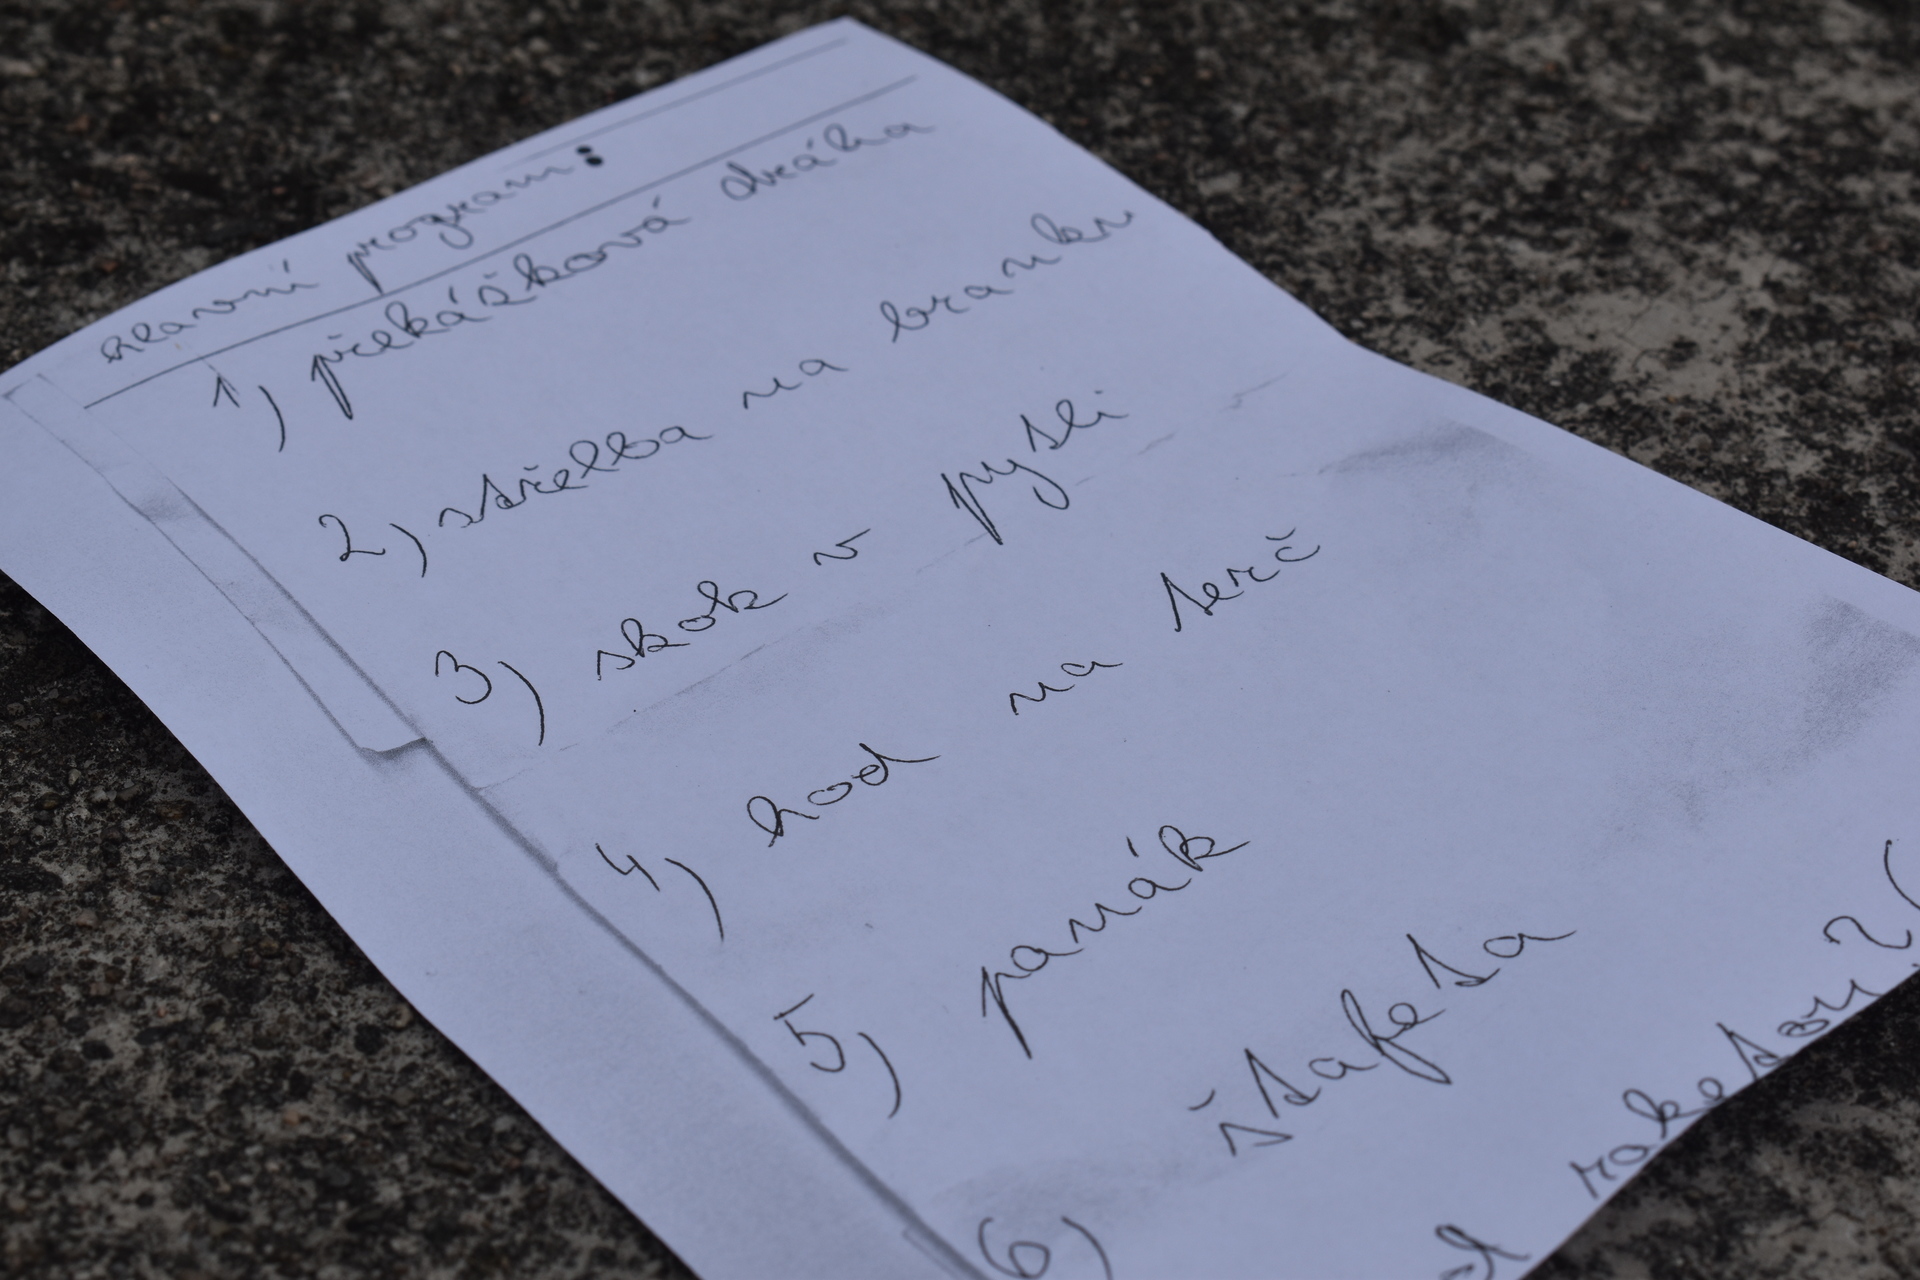 hlavní program:
1) překážková dráha
2) střelba na branku
3) skok v pytli
4) hod na terč
5) panák
6) štafeta
raketou? (